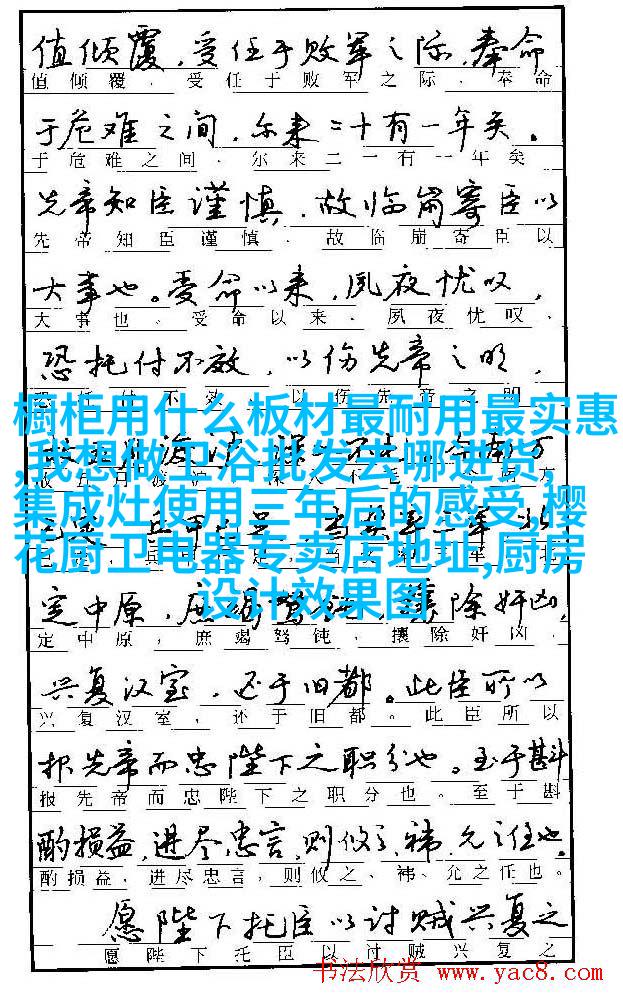 值倾覆，受任于败军之际，奉命
值倾覆，受任于败军之际，奉命
于危难之间，尔来二十有一年矣。
于危难之间，尔来二一有一年矣
先帝知臣谨慎，故临崩寄臣以
先帝知臣谨慎，故临崩寄臣以
大事也。受命以来，夙夜忧叹，
大事也。受命以来，夙夜忧叹，
恐托付不效，以伤先帝之明，
橱柜用什么板材最耐用最实惠
,我想做卫浴批发去哪进货,
集成灶使用三年后的感受,樱
花厨卫电器专卖店地址,厨房
设计效果图
定中原，庶竭驽钝，攘除奸凶，
定中原，庶竭驽钝，攘除奸凶，
兴复汉室，还于旧都。此臣所以
兴复汉室，还于旧都。此臣所以
报先帝而忠陛下之职分也。至于斟
报先帝而忠陛下之职分也。至于斟
酌损益，进尽忠言，则攸之、祎、允之任也。
酌损益，进尽忠言，则攸之、祎、允之任也。
愿陛下托臣以讨贼兴复之
愿陛下托臣以讨贼兴复之
书法欣赏 www.yac8.com